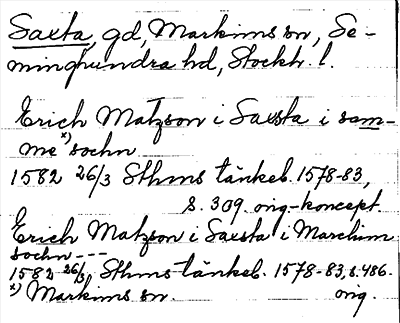 Saxta, gd, Markims sn, Se-
minghundra hd, Stockh. l.
Erich Matzson i Saxsta i sam-
me x) sochn
1582 26/3 Sthms tänkeb. 1578-83,
s. 309. orig.-koncept.
Erich Matzson i Saxsta i Marchim
sochn ---
1582 26/3, Sthms tänkeb. 1578-83, s. 486.
x) Markims sn. orig.